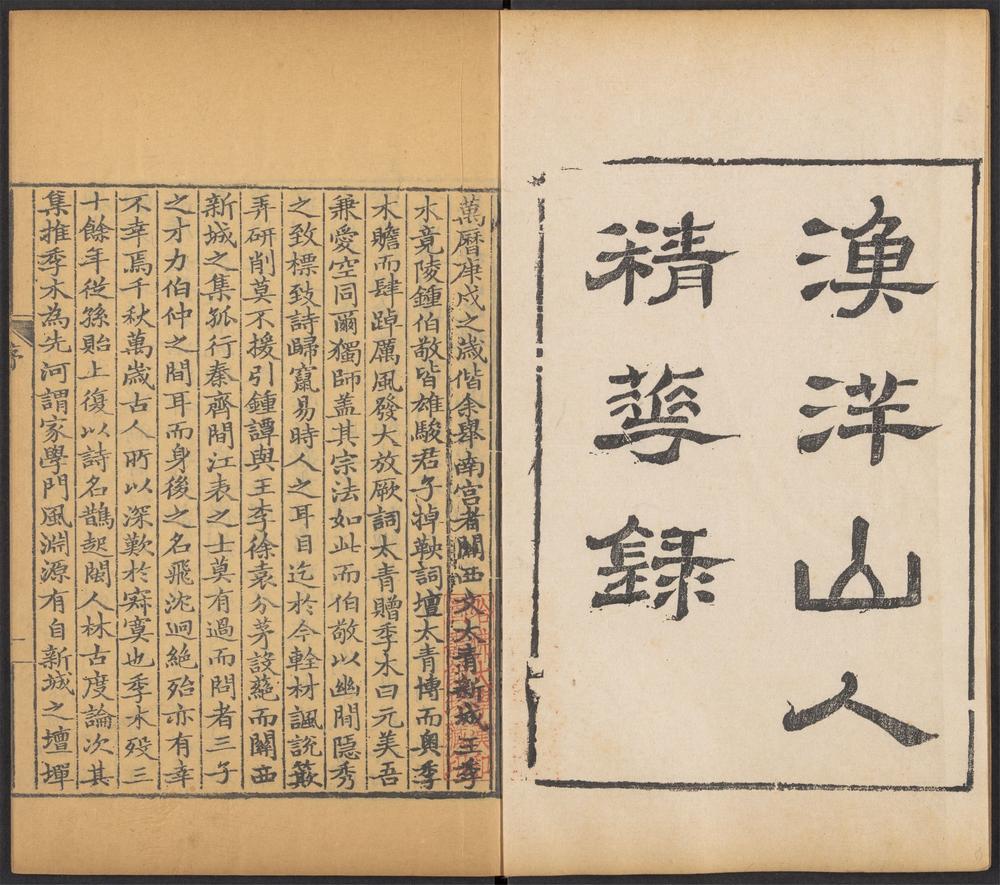 漁洋山人
精華錄
萬曆庚戍之歲偕余舉南宮者關西文太青新城王季
木竟陵鍾伯敬皆雄駿君子掉鞅詞壇太青博而奧季
木贍而肆踔厲風發大放厥詞太青贈季木曰元美吾
兼愛空同爾獨師盖其宗法如此而伯敬以幽閒隱秀
之致標致詩歸竄易時人之耳目迄於今輇材諷說簸
弄研削莫不援引鍾譚與王李徐袁分茅設蕝而關西
新城之集孤行秦齊間江表之士莫有過而問者三子
之才力伯仲之間耳而身後之名飛沈迥絕殆亦有幸
不幸焉千秋萬歲古人所以深歎於寂寞也季木歿三
十餘年從孫貽上復以詩名鵲起閩人林古度論次其
集推季木為先河謂家學門風淵源有自新城之壇墠
序
一